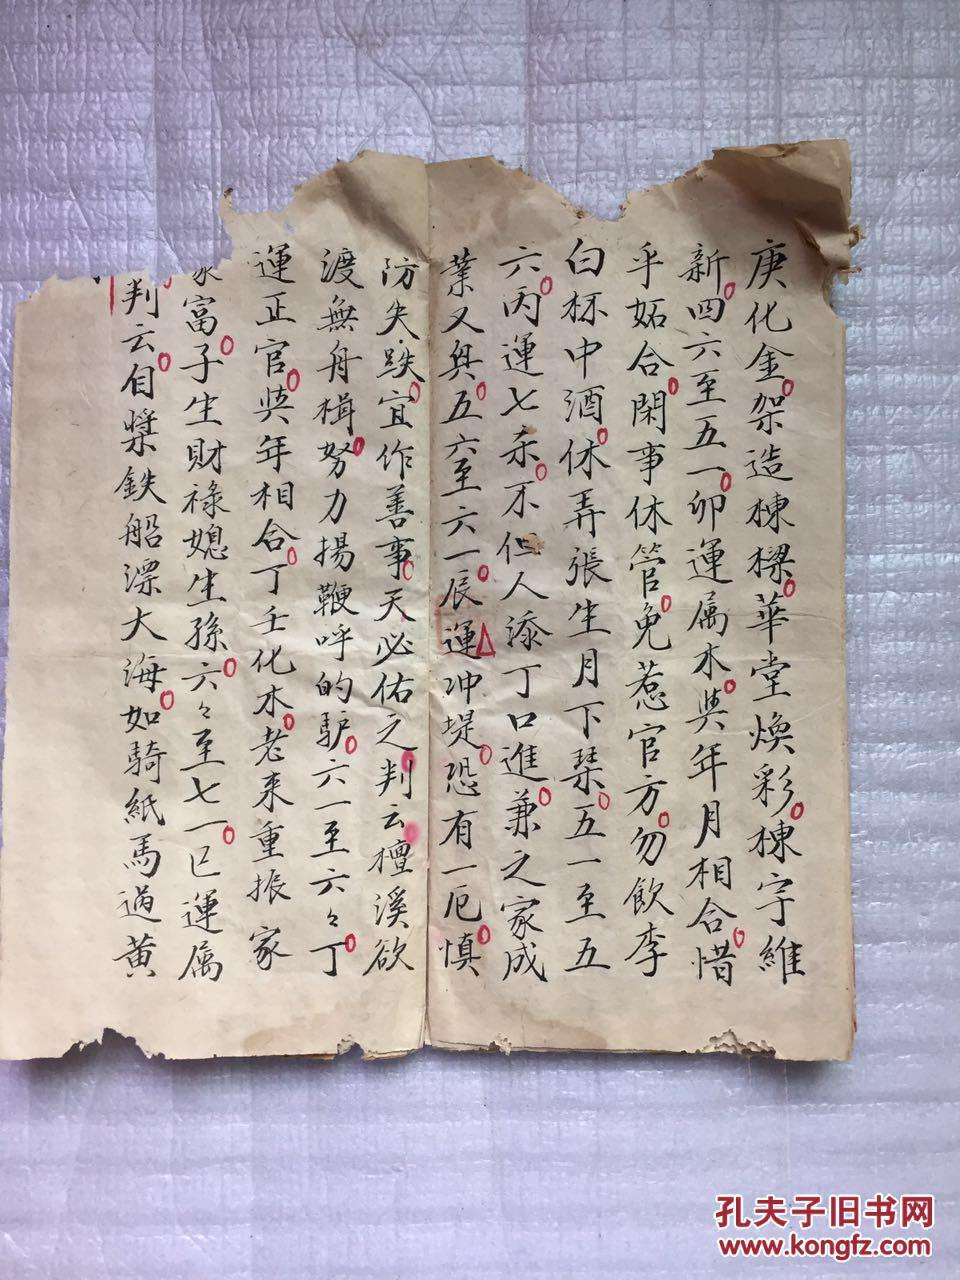 庚化金架造棟樑華堂煥彩棟宇維
新四六至五一卯運属木與年月相合惜
乎妬合閑事休管免惹官方勿飲李
白杯中酒休弄張生月下琴五一至五
六丙運七杀不仁人添丁口進兼之家成
業又興五六至六一辰運冲堤恐有一厄慎
防失跌宜作善事天必佑之判云檀溪欲
渡無舟楫努力揚鞭呼的驴六一至六々丁
運正官與年相合丁壬化木老来重振家
家富子生財祿媳生孫六々至七一巳運属
判云自槳鉄船漂大海如騎紙馬過黄
孔夫子旧书网
www.kongfz.com